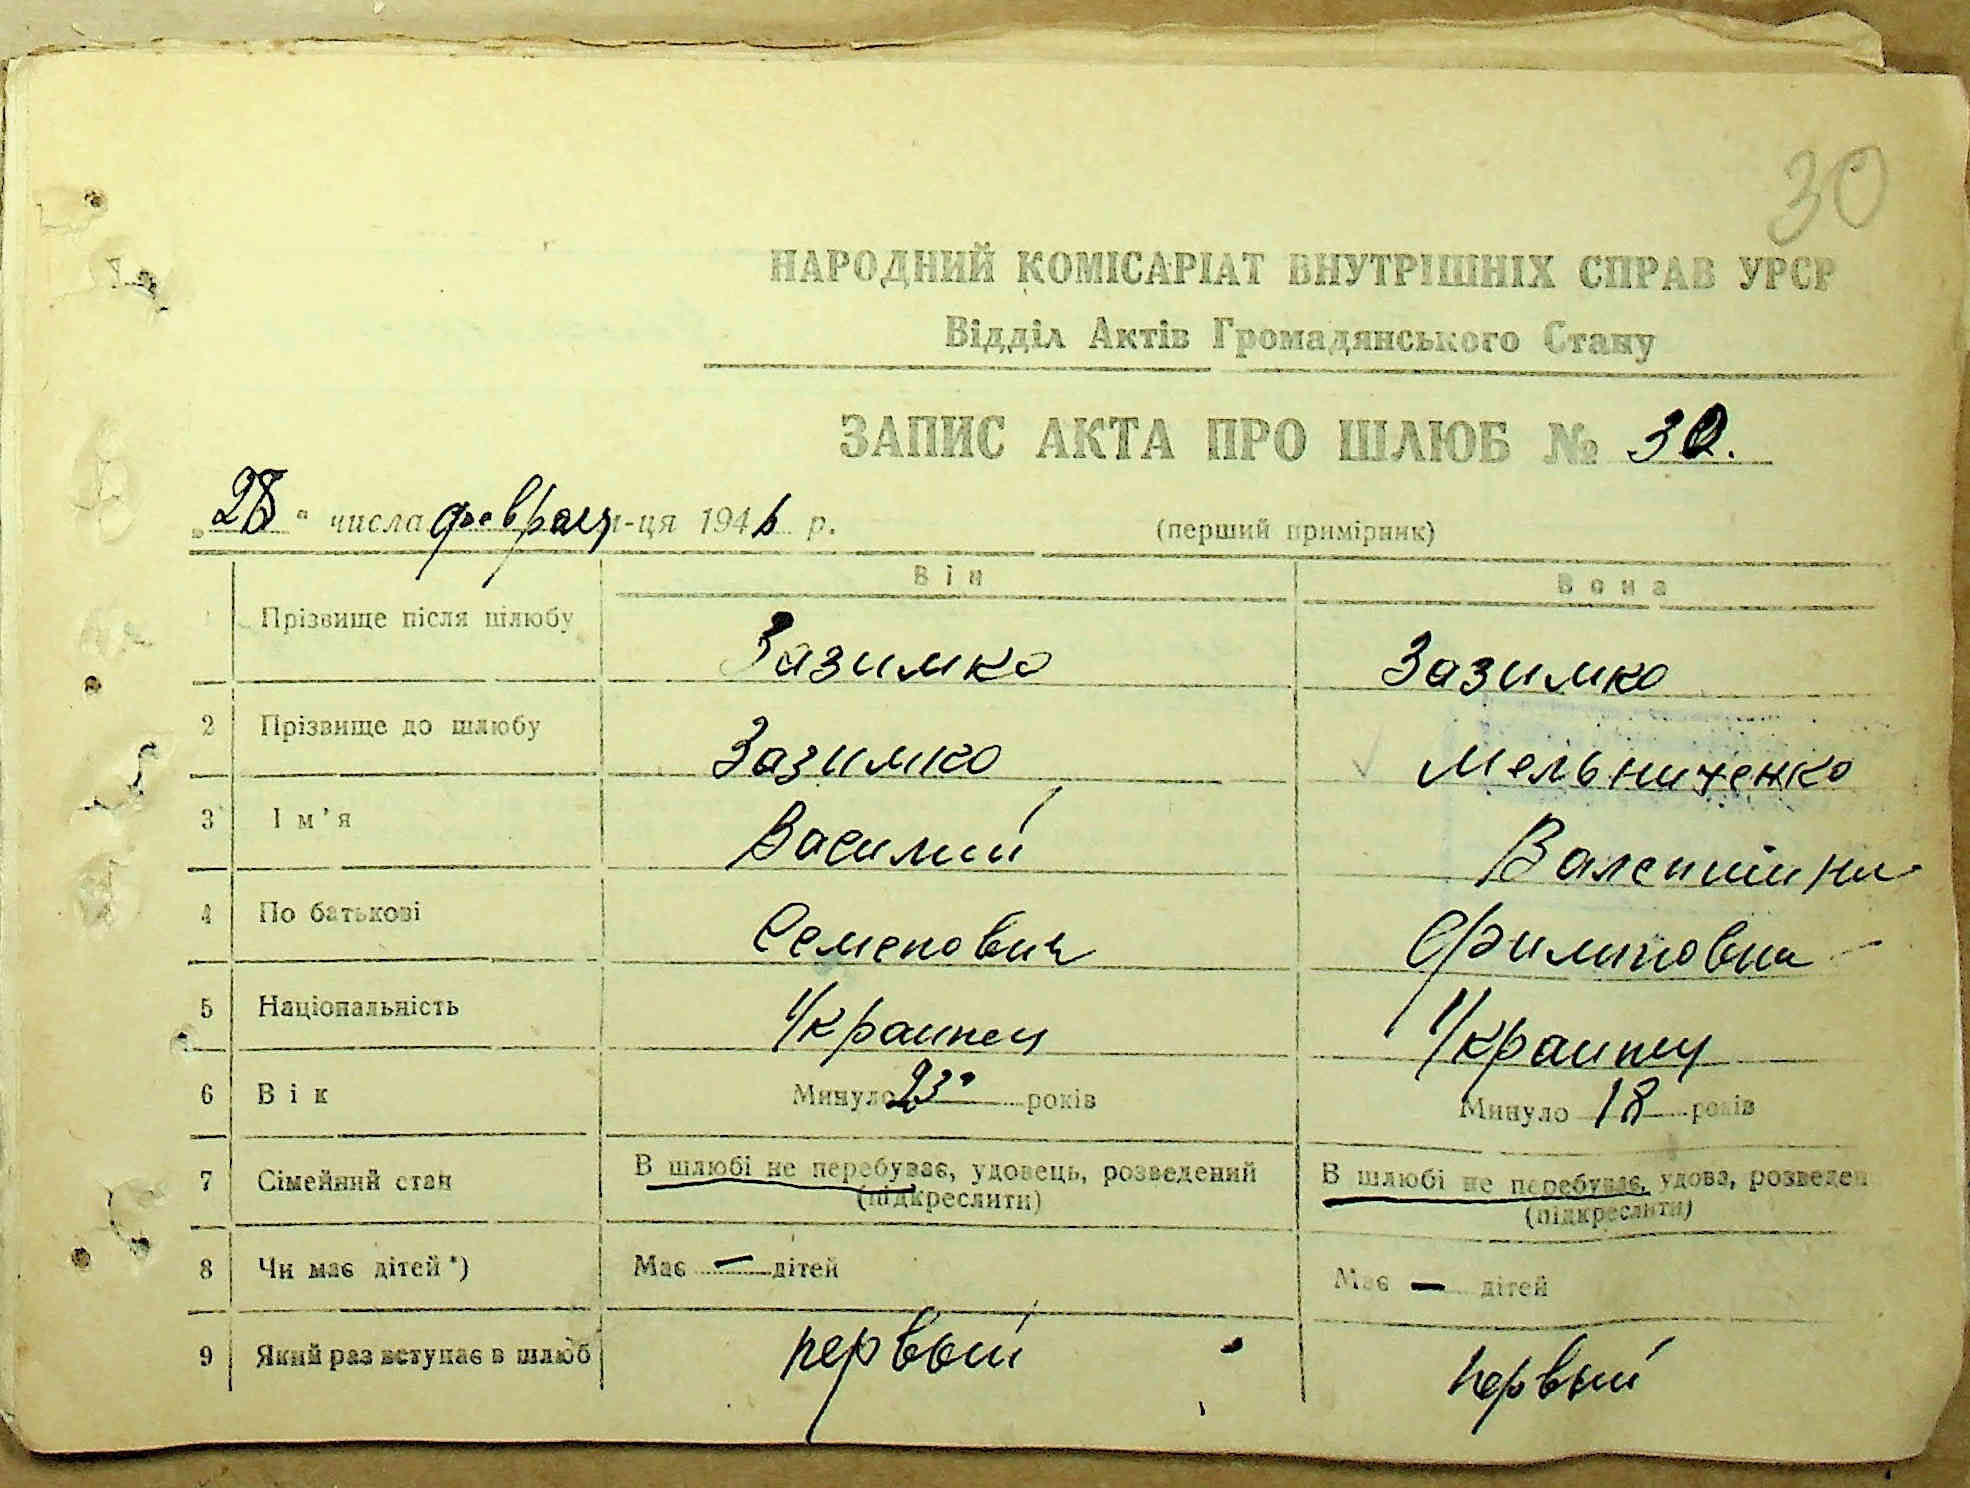 30
НАРОДНИЙ КОМІСАРІАТ ВНУТРІШНІХ СПРАВ УРСР
Відділ Актів Громадянського Стану
ЗАПИС АКТА ПРО ШЛЮБ № 30.
„28“ числа февраля м-ця 1946 р. (перший примірник)
Він Вона
1 Прізвище після шлюбу Зазимко Зазимко
2 Прізвище до шлюбу Зазимко Мельниченко
3 Ім'я Василий Валентина
4 По батькові Семенович Филиповна
5 Національність Украинец Украинец
6 Вік Минуло 23 років Минуло 18 років
7 Сімейний стан В шлюбі не перебуває, удовець, розведений В шлюбі не перебуває, удова, розведен
(підкреслити) (підкреслити)
8 Чи має дітей*) Має — дітей Має — дітей
9 Який раз вступає в шлюб первый первый